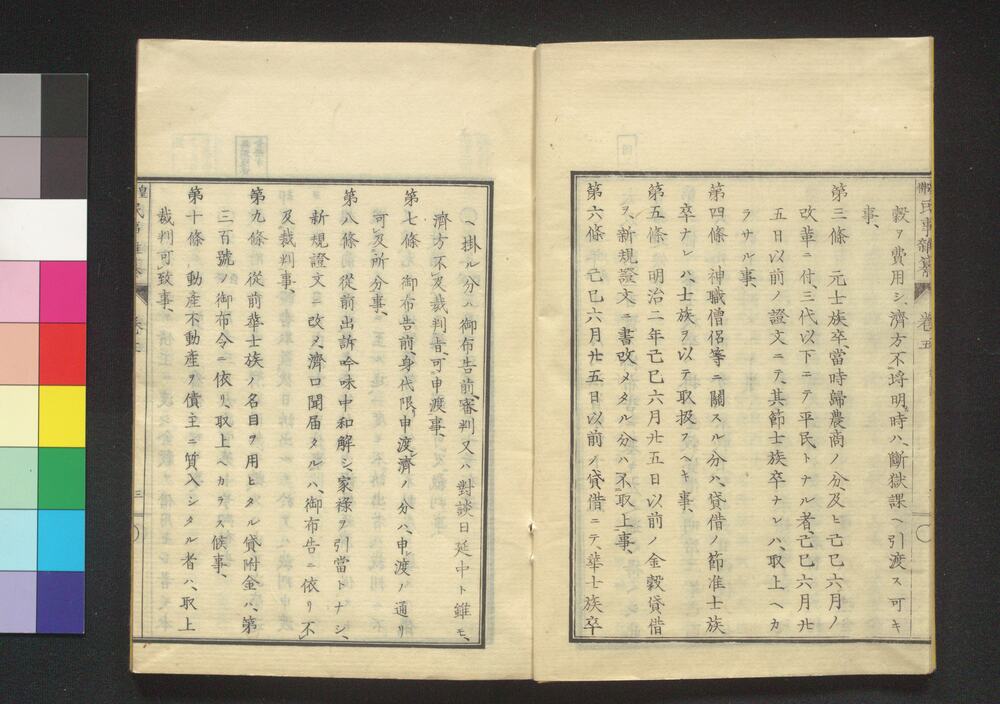 穀ヲ費用シ、濟方不埒明時ハ、斷獄課ヘ引渡ス可キ
事、
第三條　元士族卒、當時歸農商ノ分及ヒ己巳六月ノ
改革ニ付、三代以下ニテ平民トナル者、己巳六月廿
五日以前ノ證文ニテ、其節士族卒ナレハ、取上ヘカ
ラサル事、
第四條　神職僧侶等ニ關スル分ハ、貸借ノ節准士族
卒ナレハ、士族ヲ以テ取扱フヘキ事、
第五條　明治二年己巳六月廿五日以前ノ金穀貸借
ヲ、新規證文ニ書改メタル分ハ、不取上事、
第六條　己巳六月廿五日以前ノ貸借ニテ、華士族卒
ヘ掛ル分ハ、御布告前、審判又ハ對談日延中ト雖モ、
濟方不及裁判旨、可申渡事、
第七條　御布告前、身代限申渡濟ノ分ハ、申渡ノ通リ
可及所分事、
第八條　從前出訴吟味中和解シ、家祿ヲ引當トナシ、
新規證文ニ改メ、濟口聞届タルハ、御布告ニ依リ不
及裁判事、
第九條　從前華士族ノ名目ヲ用ヒタル貸附金ハ、第
三百號ノ御布令ニ依リ、取上ヘカラス候事、
第十條　動產不動產ヲ債主ニ質入シタル者ハ、取上
裁判可致事、
民事雜纂
卷五
三